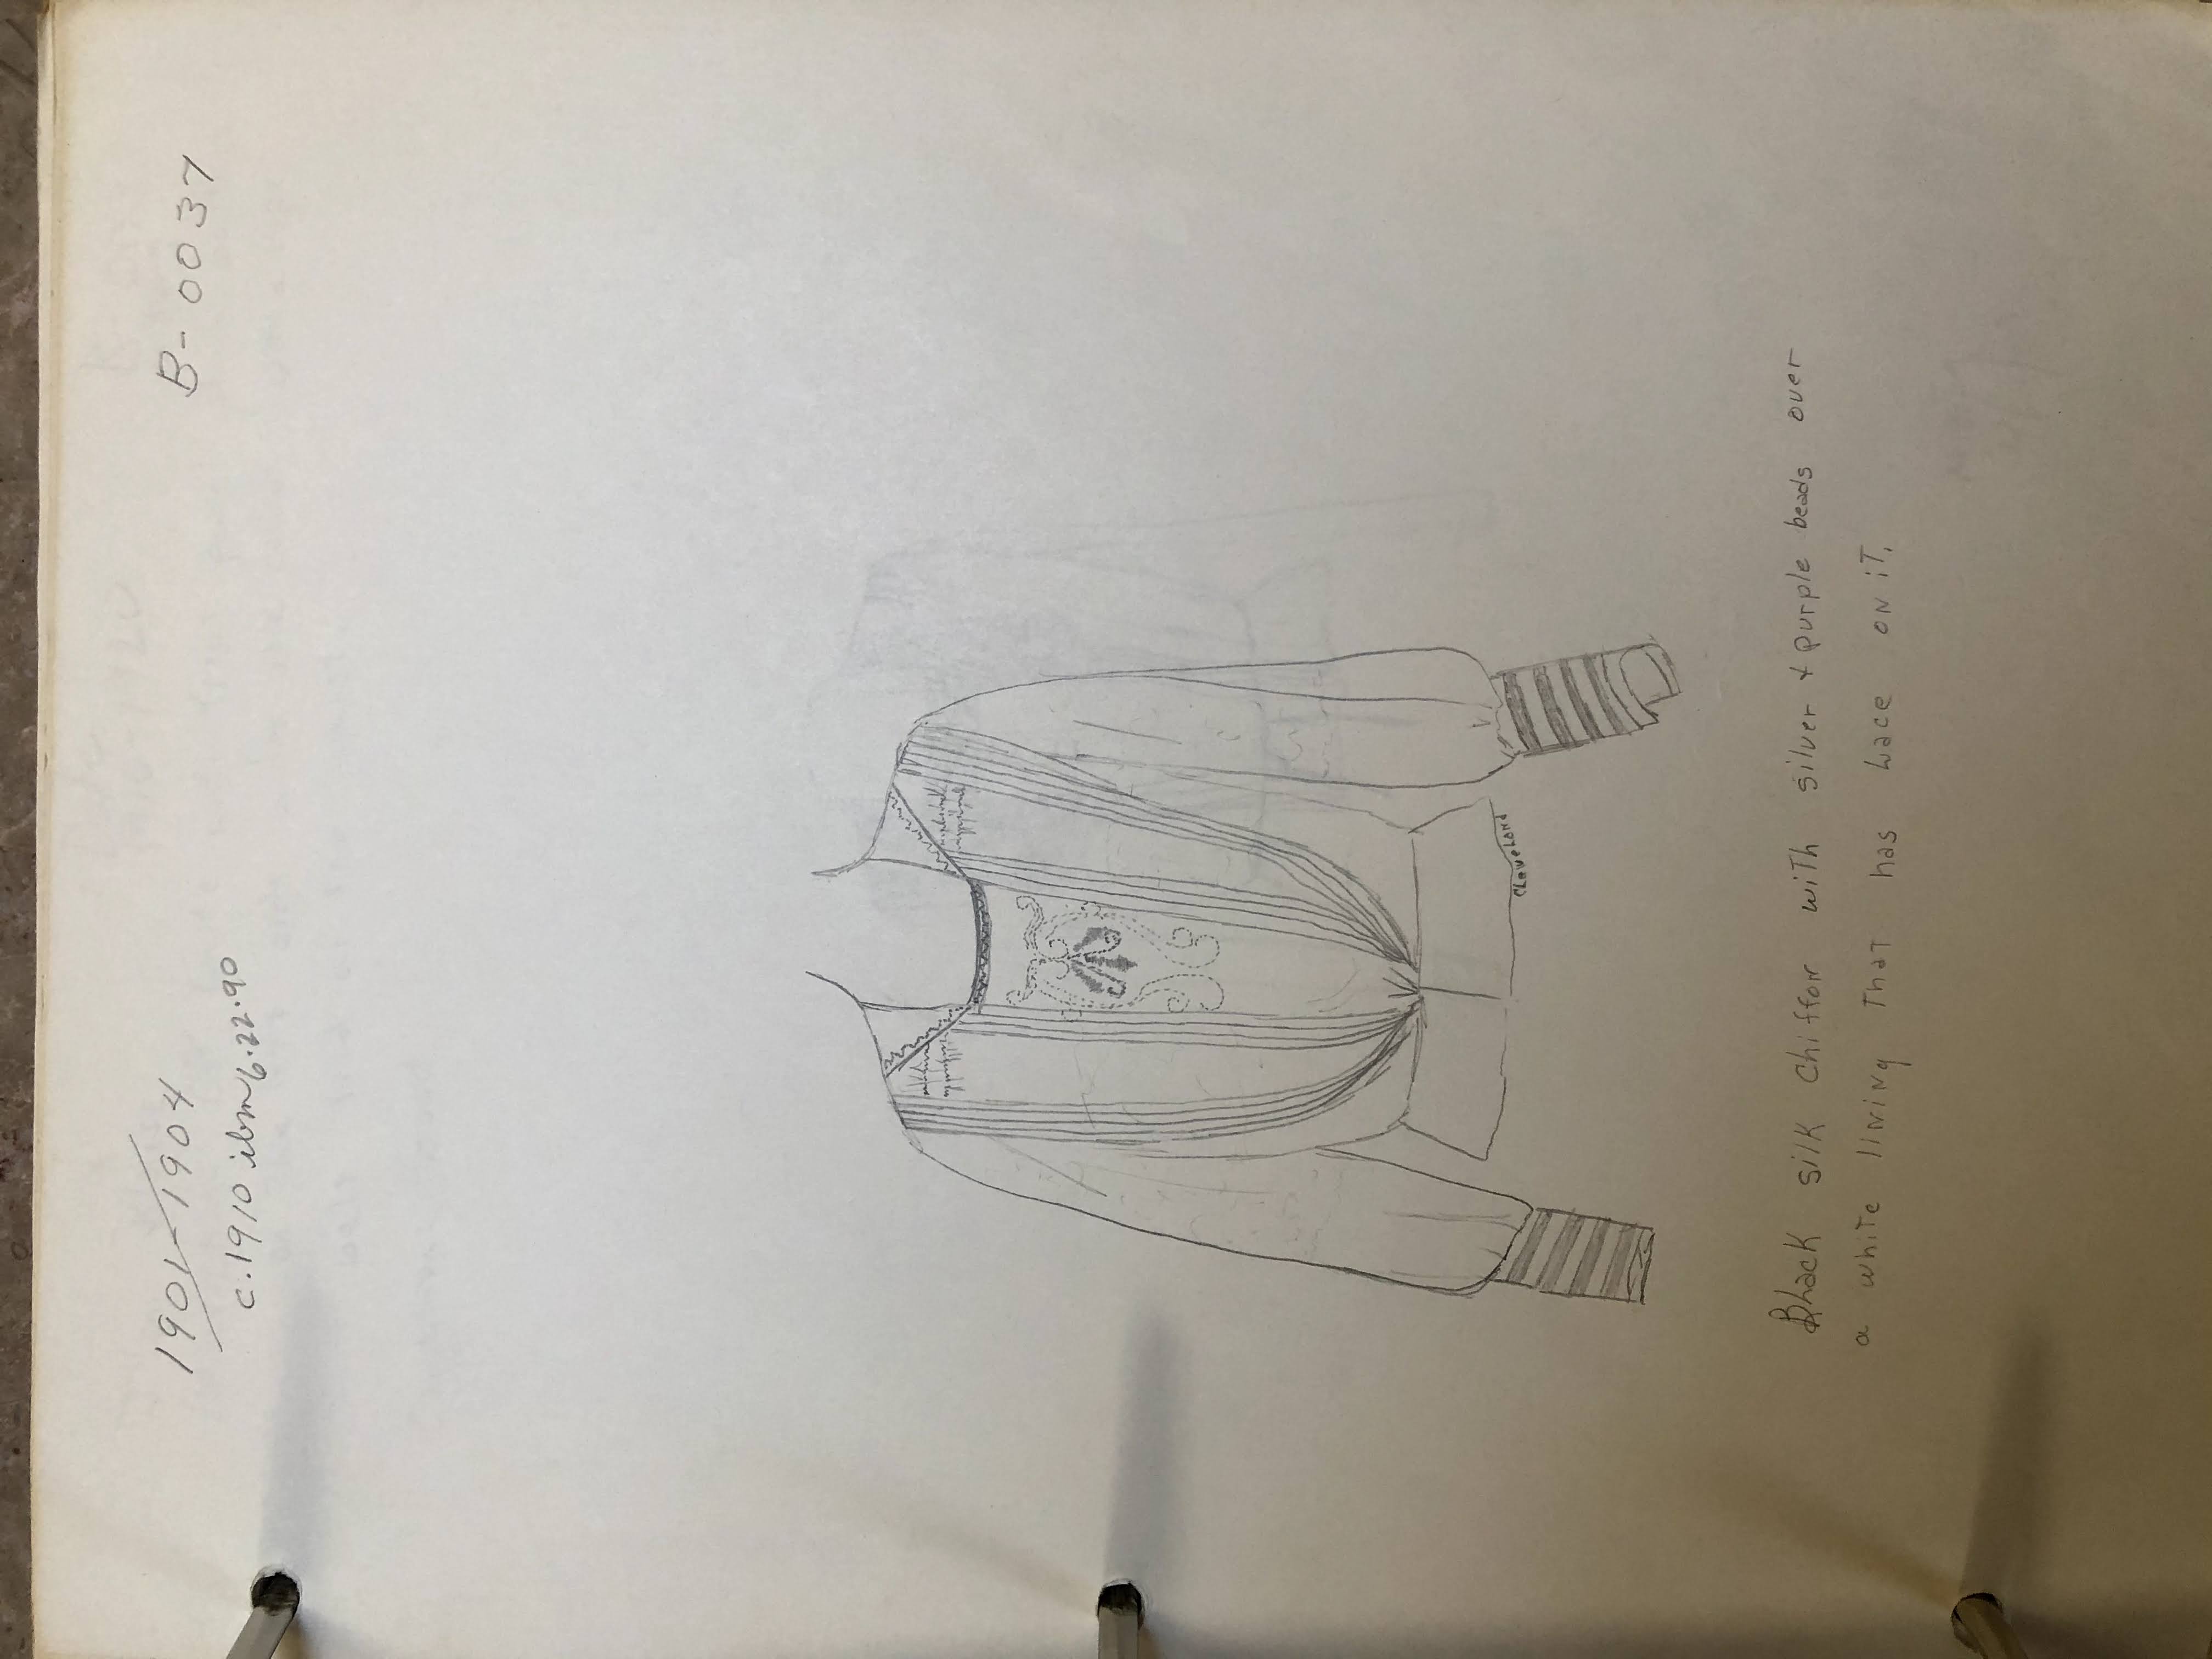 1901-1904
B-0037
c.1910 ibm 6.22.90
CLeveLand
Black silk chiffon with silver + purple beads over
a white lining that has Lace on it.